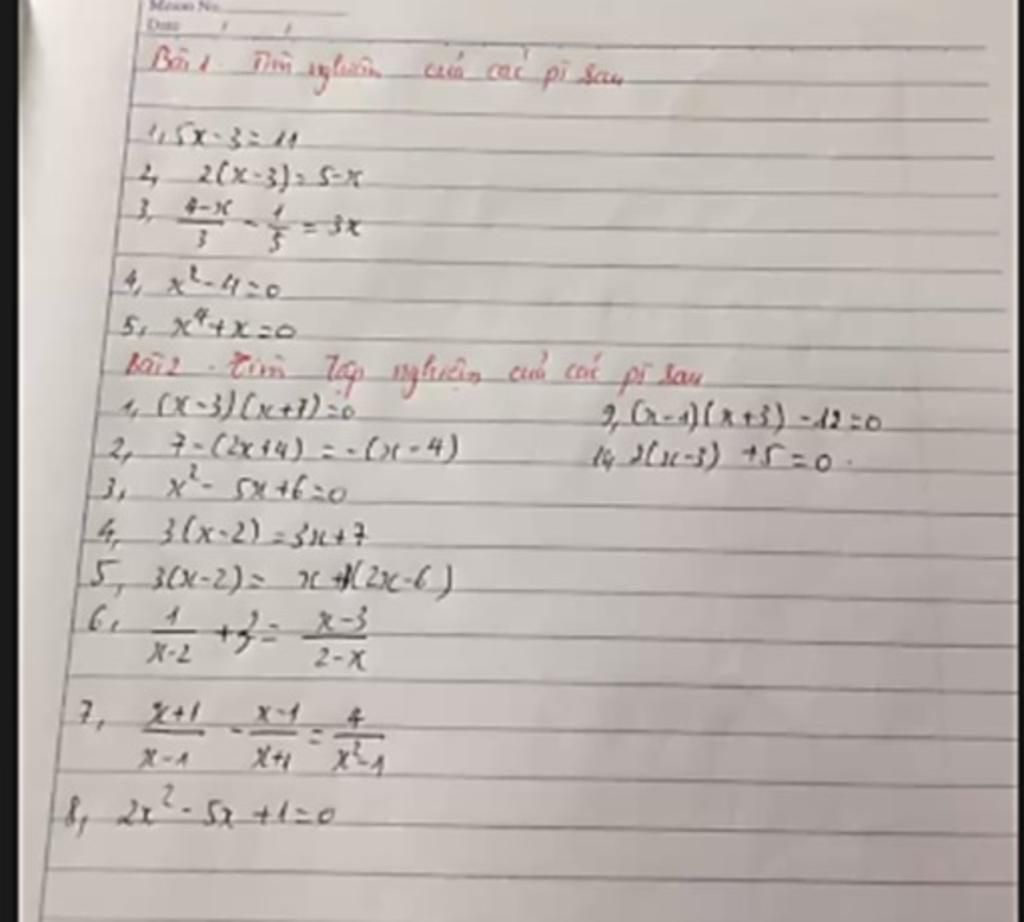 Date / /
Bài 1 Tìm nghiệm của các pt sau
1, 5x-3=11
2, 2(x-3)=5-x
3, \frac{4-x}{3} - \frac{1}{5} = 3x
4, x²-4=0
5, x⁴+x=0
Bài 2. Tìm tập nghiệm của các pt sau
1, (x-3)(x+7)=0
2, 7-(2x+4)=-(x-4)
3, x²-5x+6=0
4, 3(x-2)=3x+7
5, 3(x-2)= x+(2x-6)
6, \frac{1}{x-2} + = \frac{x-3}{2-x}
7, \frac{x+1}{x-1} - \frac{x-1}{x+1} = \frac{4}{x²-1}
8, 2x²-5x+1=0
9, (x-1)(x+3)-12=0
(x-3) +5=0.